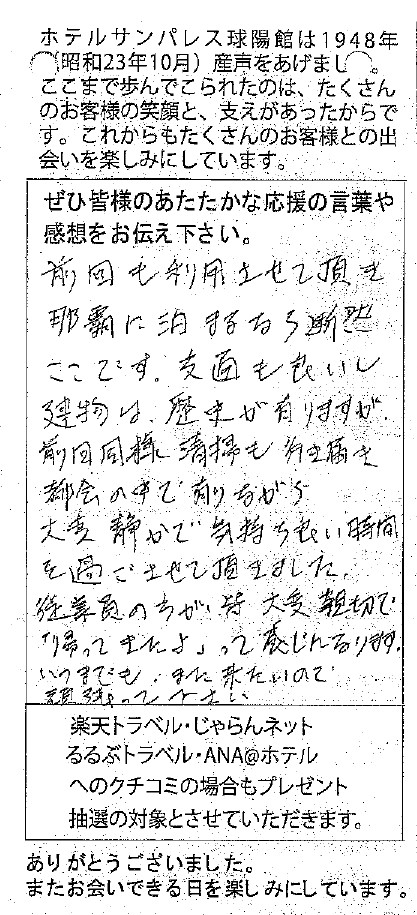 ホテルサンパレス球陽館は1948年
(昭和23年10月)産声をあげまし。
ここまで歩んでこられたのは、たくさん
のお客様の笑顔と、支えがあったからで
す。これからもたくさんのお客様との出
会いを楽しみにしています。
ぜひ皆様のあたたかな応援の言葉や
感想をお伝え下さい。
前回も利用させて頂き
那覇に泊まるなら断然
ここです。交通も良いし
建物は、歴史が有りますが、
前回同様に清掃も行き届き
都会の中で有りながら
大変静かで気持ち良い時間
を過ごさせて頂きました。
従業員の方が、皆大変親切で
「帰ってきたよ」って感じになります。
いつまでも、また来たいので
頑張って下さい
楽天トラベル・じゃらんネット
るるぶトラベル・ANA@ホテル
へのクチコミの場合もプレゼント
抽選の対象とさせていただきます。
ありがとうございました。
またお会いできる日を楽しみにしています。